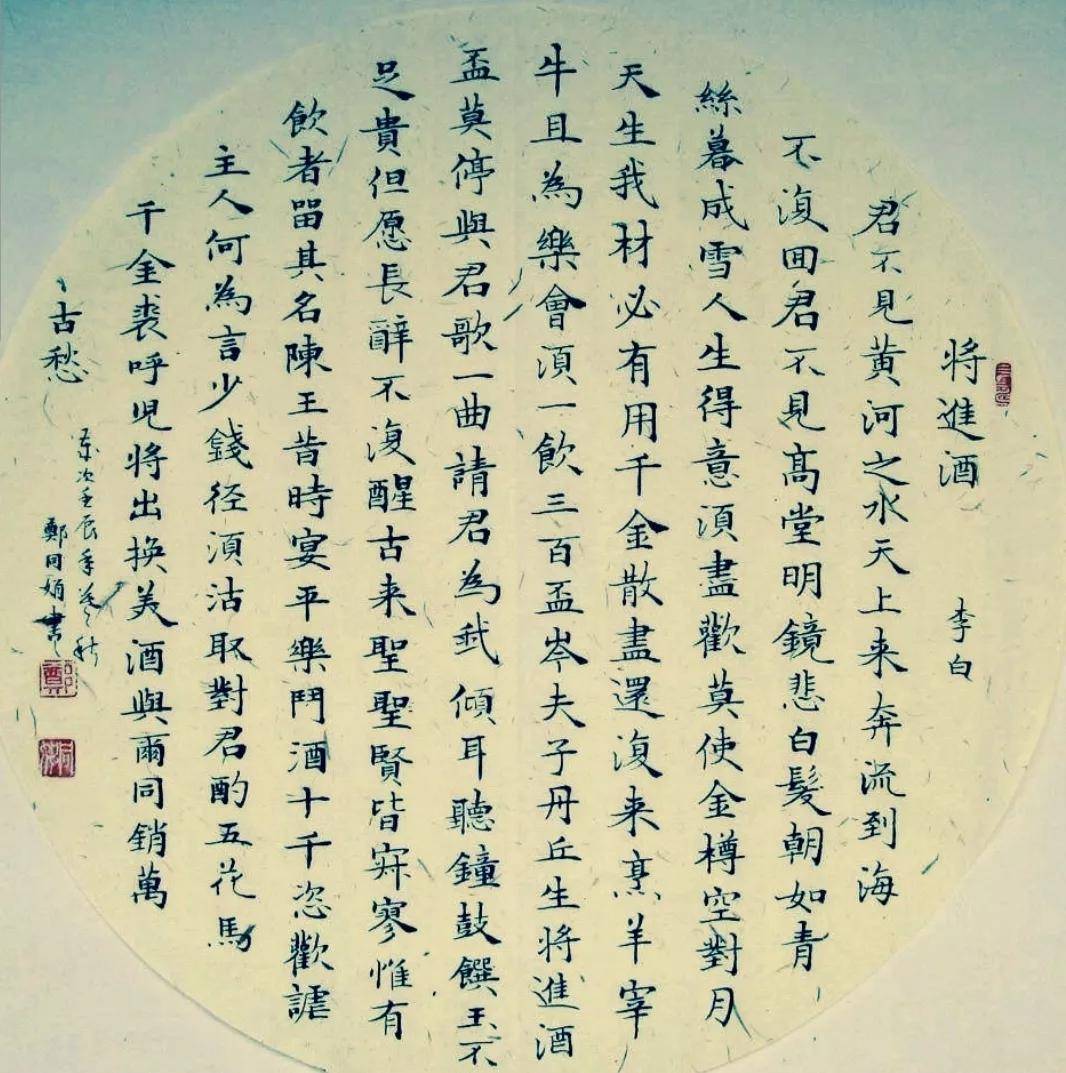 将進酒 李白
君不見黄河之水天上来奔流到海
不復囬君不見高堂明鏡悲白髮朝如青
絲暮成雪人生得意湏盡歡莫使金樽空對月
天生我材必有用千金散盡還復来烹羊宰
牛且為樂會湏一飲三百盃岑夫子丹丘生将進酒
盃莫停與君歌一曲請君為我傾耳聽鐘鼓饌玉不
足貴但愿長辭不復醒古来聖聖賢皆寂寥惟有
飲者留其名陳王昔時宴平樂鬥酒十千恣歡謔
主人何為言少錢径湏沽取對君酌五花馬
千金裘呼児将出换美酒與爾同銷萬
古愁
次壬辰年之秋
鄭同娟書